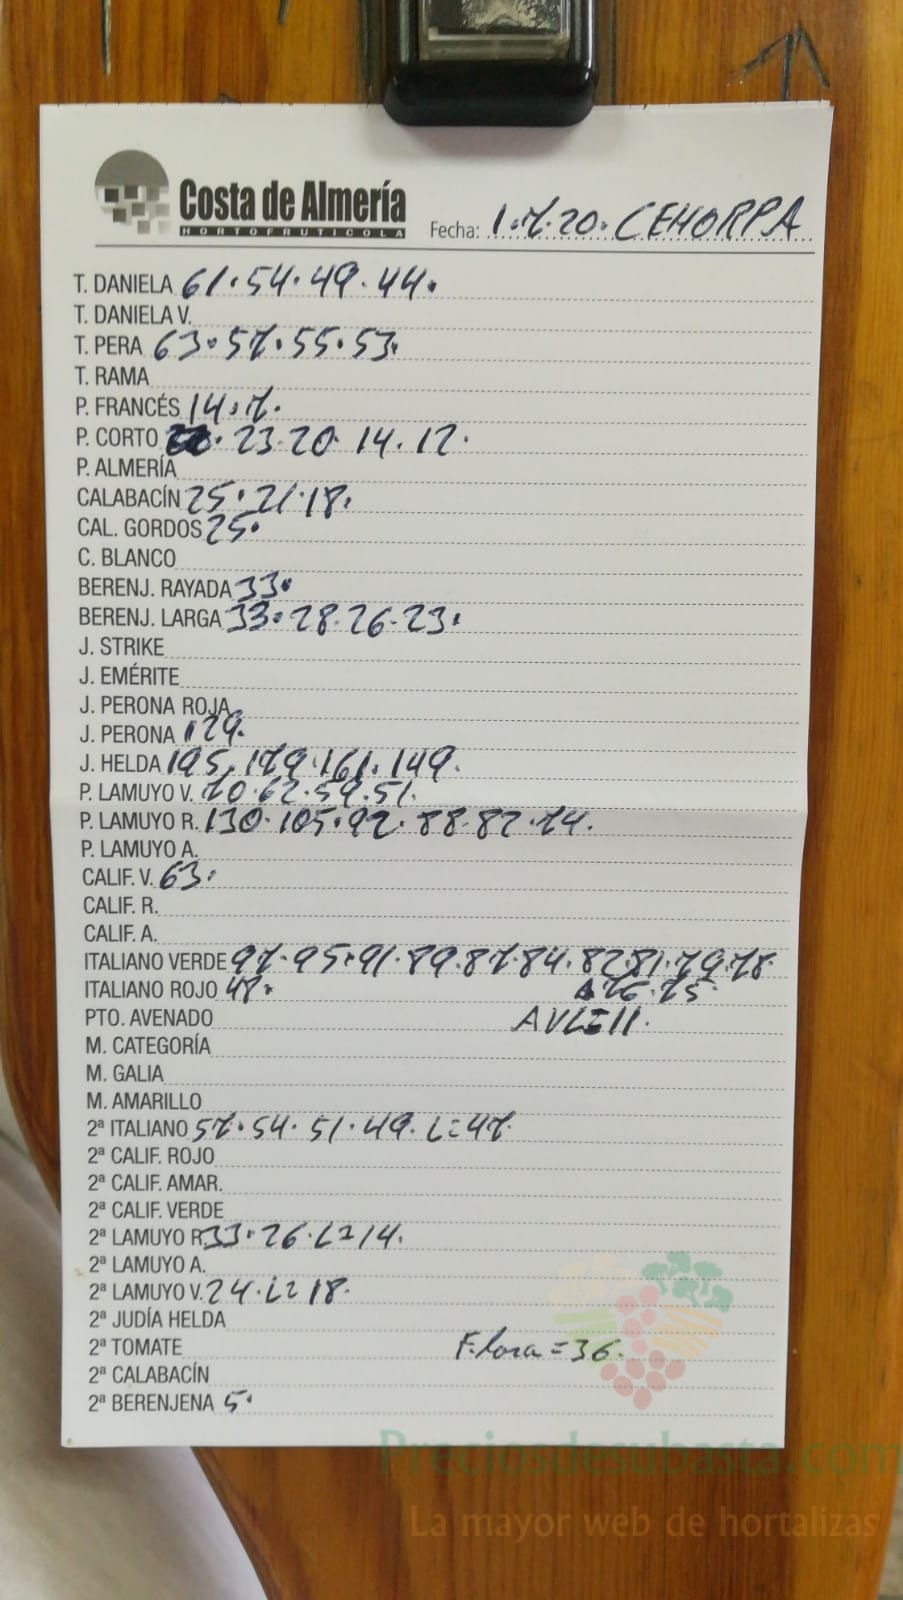 Costa de Almería
HORTOFRUTICOLA
Fecha: 1.7.20. CEHORPA
T. DANIELA 61.54.49.44.
T. DANIELA V.
T. PERA 63.57.55.53.
T. RAMA
P. FRANCÉS 14.7.
P. CORTO . 23.20 14.12.
P. ALMERÍA
CALABACÍN 25.21.18.
CAL. GORDOS 25.
C. BLANCO
BERENJ. RAYADA 33.
BERENJ. LARGA 33.28.26.23.
J. STRIKE
J. EMÉRITE
J. PERONA ROJA
J. PERONA 129.
J. HELDA 195.179.161.149.
P. LAMUYO V. 70.62.59.51.
P. LAMUYO R. 130.105.92.88.82.74.
P. LAMUYO A.
CALIF. V. 63.
CALIF. R.
CALIF. A.
ITALIANO VERDE 97.95.91.89.87.84.82.81.79.78.
ITALIANO ROJO 48. 76.75.
PTO. AVENADO
M. CATEGORÍA
M. GALIA
M. AMARILLO
2ª ITALIANO 57.54.51.49.L=47.
2ª CALIF. ROJO
2ª CALIF. AMAR.
2ª CALIF. VERDE
2ª LAMUYO R. 33.26.L=14.
2ª LAMUYO A.
2ª LAMUYO V. 24.L=18.
2ª JUDÍA HELDA
2ª TOMATE F. lora=36.
2ª CALABACÍN
2ª BERENJENA 5.
Preciosdesubasta.com
La mayor web de hortalizas